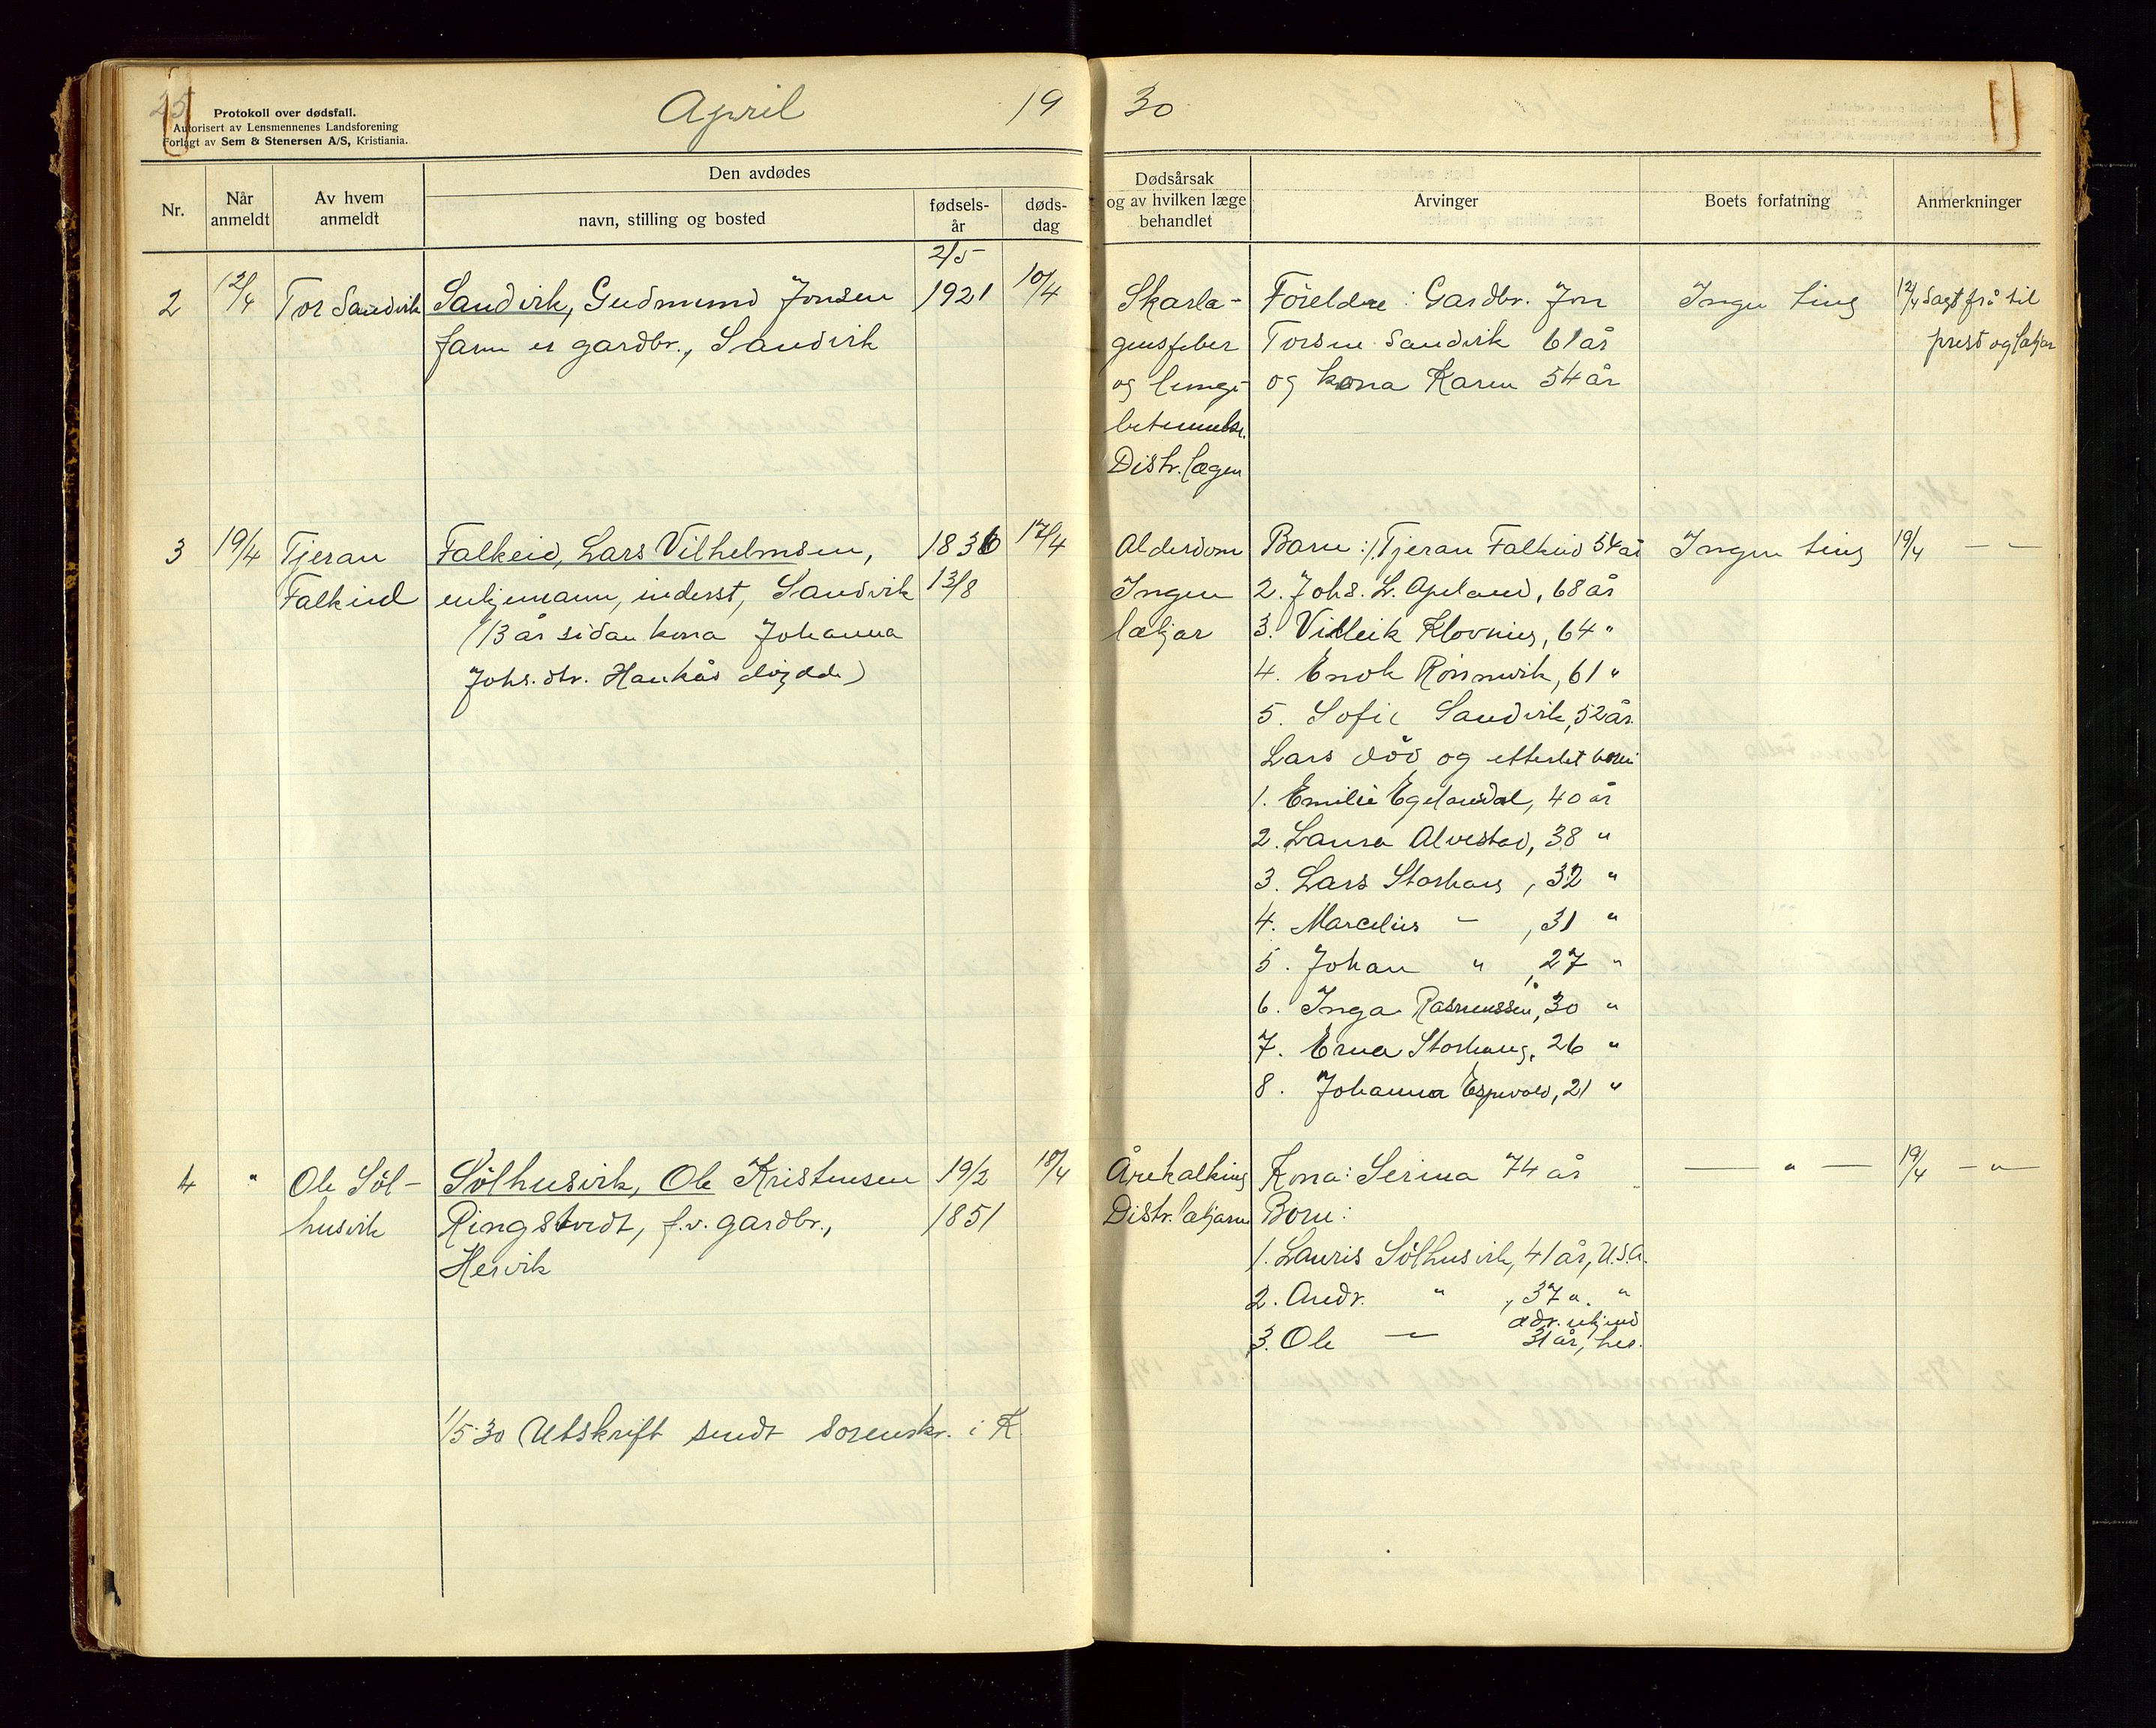 25
Protokoll over dødsfall.
Autorisert av Lensmennenes Landsforening
Forlagt av Sem & Stenersen A/S, Kristiania.
April 19 30
Nr.
Når anmeldt
Av hvem anmeldt
Den avdødes
navn, stilling og bosted
fødsels-år
døds-dag
Dødsårsak
og av hvilken læge
behandlet
Arvinger
Boets forfatning
Anmerkninger
2
12/4
Tor Sandvik
Sandvik, Gudmund Jonsen
faren er gardbr., Sandvik
2/5
1921
10/4
Skarla-
gensfeber
og lunge-
betennelse.
Distr. lægen
Foreldre: Gardbr. Jon
Torsen Sandvik 61 år
og kona Karen 54 år
Ingen ting
12/4 Sagt frå til
prest og lækjar
3
19/4
Tjeran
Falkeid
Falkeid, Lars Vilhelmsen,
enkjemann, inderst, Sandvik
(13 år sidan kona Johanna
Johs. dtr. Haukås døydde)
1836
13/8
17/4
Alderdom
Ingen
lækjar
Born: 1. Tjeran Falkeid 54 år
2. Johs. L. Apeland, 68 år
3. Villeik Klovning, 64 "
4. Enok Rønnevik, 61 "
5. Sofie Sandvik, 52 år.
Lars død og etterlet born
1. Emilie Egelandsdal, 40 år
2. Laura Alvestad, 38 "
3. Lars Storhaug, 32 "
4. Marcelius - , 31 "
5. Johan " , 27 "
6. Inga Rasmussen, 30 "
7. Erna Storhaug, 26 "
8. Johanna Espevold, 21 "
Ingen ting
19/4 — " —
4
"
Ole Søl-
husvik
Sølhusvik, Ole Kristensen
Ringstvedt, f.v. gardbr.,
Hervik
19/2
1851
18/4
Årekalking
Distr. lækjaren
Kona: Serina 74 år
Born:
1. Lauris Sølhusvik, 41 år, U.S.A.
2. Andr. " , 37 ". "
adr. ukjend
3. Ole — " — 31 år, hes.
— " —
19/4 — " —
1/5 30 Utskrift sendt sorenskr. i K.